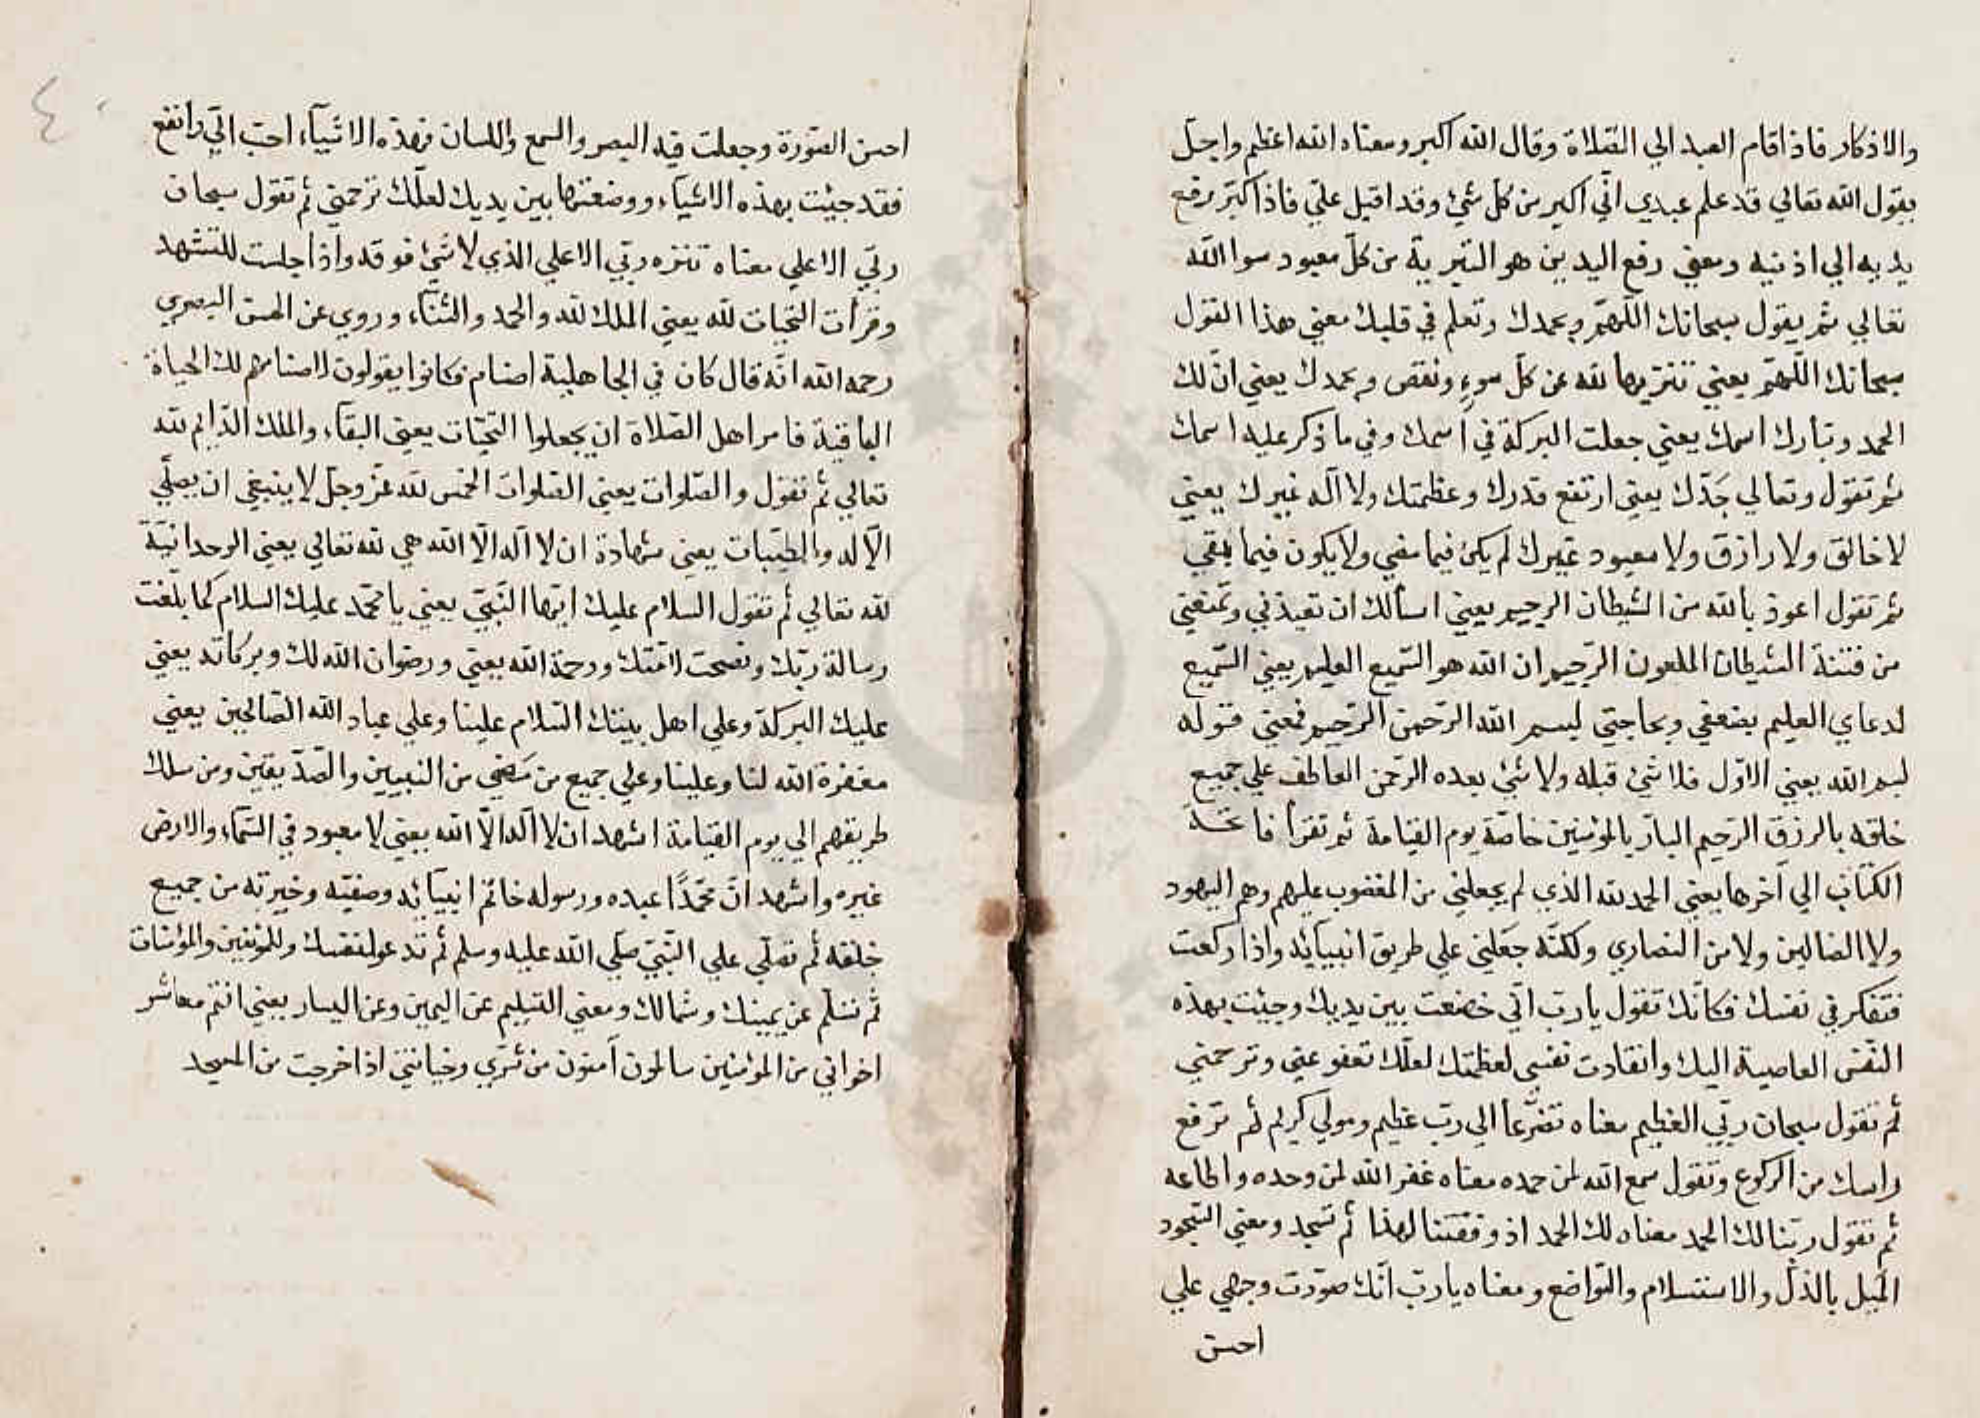 والاذكار فاذا قام العبد الي الصّلاة وقال الله اكبر ومعناه الله اعظم واجلّ
يقول الله تعالي قد علم عبدي انّي اكبر من كلّ شئ وقد اقبل عليّ فاذا كبّر يرفع
يديه الي اذنيه ومعني رفع اليدين هو التبرية من كلّ معبود سوا الله
تعالي ثمّ يقول سبحانك اللّهمّ وبحمدك وتعلم في قلبك معني هذا القول
سبحانك اللّهمّ يعني تنزيها لله عن كلّ سوءٍ ونقص وبحمدك يعني انّ لك
الحمد وتبارك اسمك يعني جعلت البركة في اسمك وفي ما ذكر عليه اسمك
ثمّ تقول وتعالي جَدّك يعني ارتفع قدرك وعظمتك ولا اله غيرك يعني
لا خالق ولا رازق ولا معبود غيرك لم يكن فيما مضي ولا يكون فيما بقي
ثمّ تقول اعوذ بالله من الشيطان الرجيم يعني اسألك ان تعيذني وتمنعني
من فتنة الشيطان الملعون الرّجيم ان الله هو السّميع العليم يعني السّميع
لدعاي العليم بضعفي وبحاجتي بسم الله الرّحمن الرّحيم فمعني قوله
بسم الله يعني الاوّل فلا شئ قبله ولا شئ بعده الرّحمن العاطف علي جميع
خلقه بالرزق الرّحيم البارّ بالمؤمنين خاصّة يوم القيامة ثم تقرأ فاتحة
الكتاب الي آخرها يعني الحمد لله الذي لم يجعلني من المغضوب عليهم وهم اليهود
ولا الضالين ولا من النصاري ولكنّه جعلني علي طريق انبيآئه واذا ركعت
فتفكر في نفسك فكانّك تقول يا ربّ انّي خضعت بين يديك وجيئت بهذه
النّفس العاصية اليك وانقادت نفسي لعظمتك لعلّك تعفو عني وترحمني
ثم تقول سبحان ربّي العظيم معناه تضرّعا الي ربّ عظيم ومولي كريم ثم ترفع
راسك من الركوع وتقول سمع الله لمن حمده معناه غفر الله لمن وحده واطاعه
ثم تقول ربّنا لك الحمد معناه لك الحمد اذ وفقتنا لهذا ثم تسجد ومعني السّجود
الميل بالذلّ والاستسلام والتواضع ومعناه يا ربّ انّك صوّرت وجهي علي
احسن
٤٠
احسن الصّورة وجعلت فيه البصر والسمع واللسان فهذه الاشيآء احبّ اليّ وانفع
فقد جيئت بهذه الاشيآء ووضعتها بين يديك لعلّك ترحمني ثم تقول سبحان
ربّي الاعلي معناه تنزه ربّي الاعلي الذي لا شئ فوقه واذا جلست للتشهد
وقرأت التحيات لله يعني الملك لله والحمد والثنآء وروي عن الحسن البصري
رحمه الله انّه قال كان في الجاهلية اصنام فكانوا يقولون لاصنامهم لك الحياة
الباقية فامر اهل الصّلاة ان يجعلوا التحيّات يعني البقآء والملك الدّايم لله
تعالي ثم تقول والصّلوات يعني الصّلوات الخمس لله عزّ وجلّ لا ينبغي ان يصلّي
الّا له والطيّبات يعني شهادة ان لا اله الّا الله هي لله تعالي يعني الوحدانيّة
لله تعالي ثم تقول السلام عليك ايّها النّبيّ يعني يا محمّد عليك السلام كما بلّغت
رسالة ربّك ونصحت لامّتك ورحمة الله يعني ورضوان الله لك وبركاته يعني
عليك البركة وعلي اهل بيتك السّلام علينا وعلي عباد الله الصّالحين يعني
مغفرة الله لنا وعلينا وعلي جميع من مَضي من النبيين والصّدّيقين ومن سلك
طريقهم الي يوم القيامة اشهد ان لا اله الّا الله يعني لا معبود في السّمآء والارض
غيره واشهد انّ محمّدًا عبده ورسوله خاتم انبيآئه وصفيّه وخيرته من جميع
خلقه ثم تصلّي علي النّبيّ صلّي الله عليه وسلم ثم تدعو لنفسك وللمؤمنين والمؤمنات
ثم تسلّم عن يمينك وشمالك ومعني التسليم عن اليمين وعن اليسار يعني انتم معاشر
اخواني من المؤمنين سالمون آمنون من شرّي وخيانتي اذا خرجت من المسجد